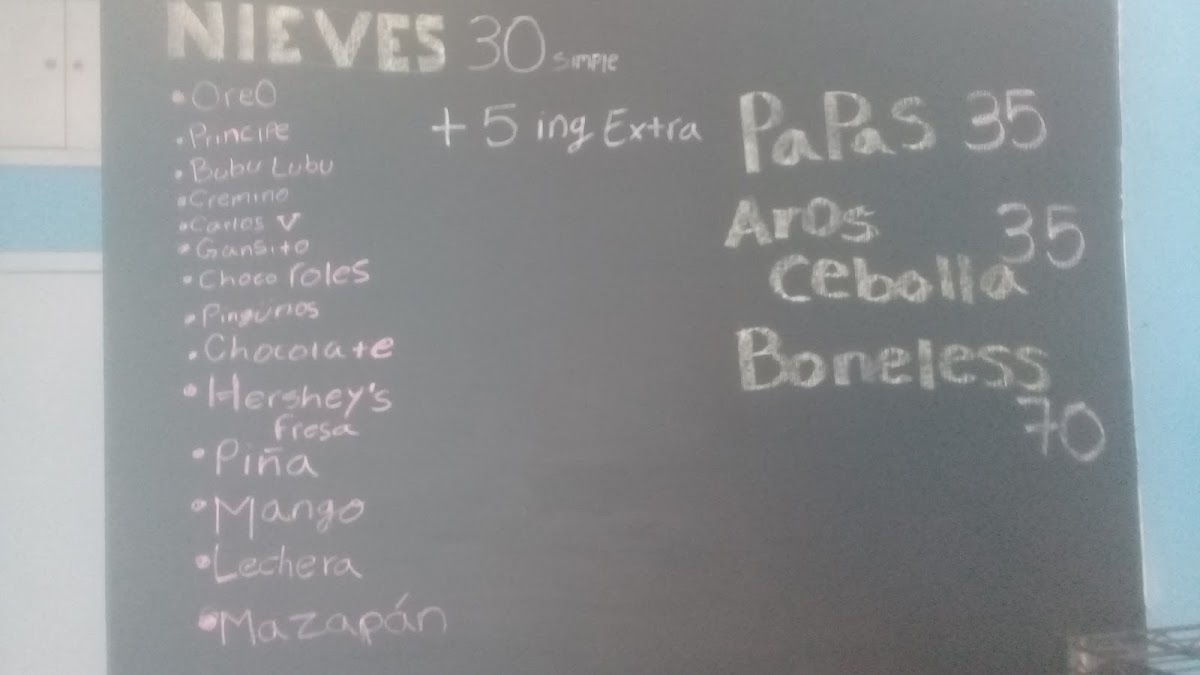 NIEVES 30 simple
• Oreo
• Principe
• Bubu Lubu
• Cremino
• Carlos V
• Gansito
• Choco roles
• Pingüinos
• Chocolate
• Hershey's
Fresa
• Piña
• Mango
• Lechera
• Mazapán
+ 5 ing Extra
PaPaS 35
Aros 35
Cebolla
Boneless
70